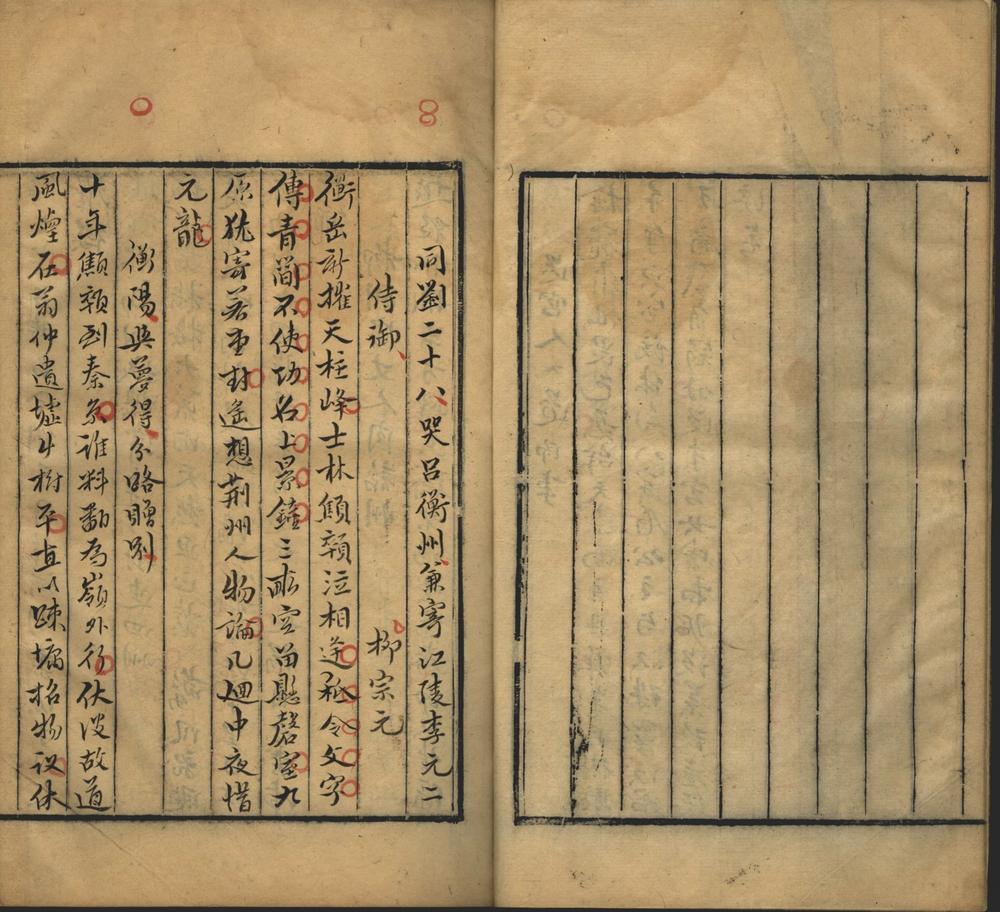 同劉二十八哭呂衡州兼寄江陵李元二
侍御 柳宗元
衡岳新摧天柱峰士林顦顇泣相逢秖令文字
傳青簡不使功名上景鐘三畝空留懸磬室九
原犹寄若堂封遙想荆州人物論几迴中夜惜
元龍
衡陽與夢得分路贈別
十年顦顇到秦京誰料翻為嶺外行伏波故道
風煙在翁仲遺墟艸樹平直以踈慵招物議休